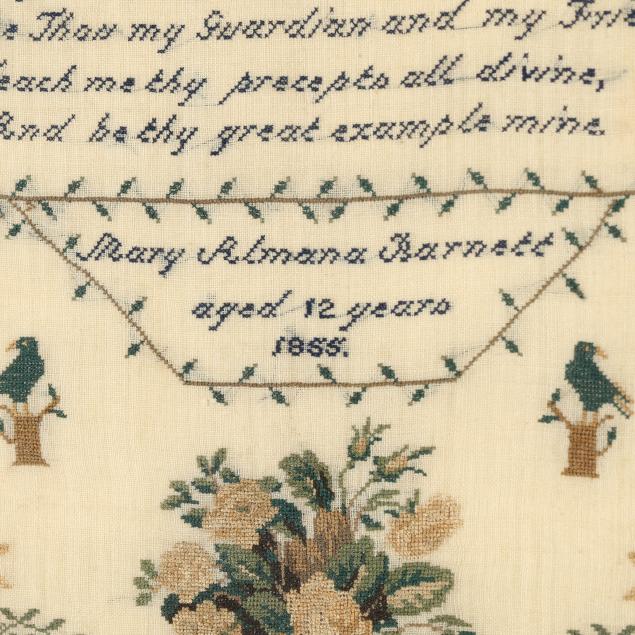 e Thou my Guardian and my Frie
teach me thy precepts all divine,
And be thy great example mine.
Mary Almana Barnett
aged 12 years
1855.